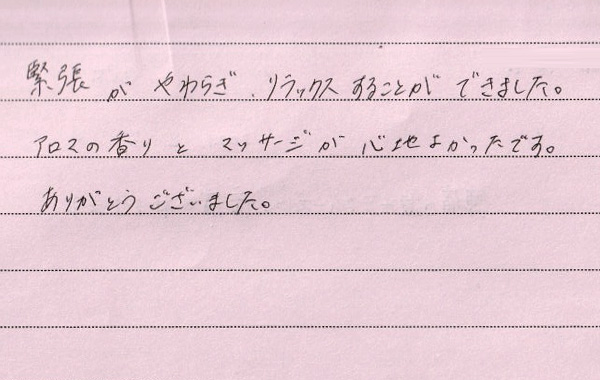 緊張がやわらぎ、リラックスすることができました。
アロマの香りとマッサージが心地よかったです。
ありがとうございました。